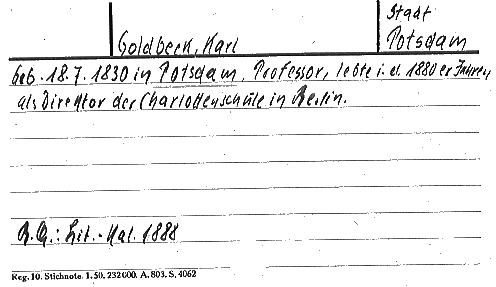 Stadt
Goldbeck, Karl Potsdam
geb. 18.7.1830 in Potsdam, Professor, lebte i. d. 1880er Jahren
als Direktor der Charlottenschule in Berlin.
R.G.: Lit.-Kal. 1888
Reg. 10. Stichnote. 1. 50. 232000. A. 803. S. 4062